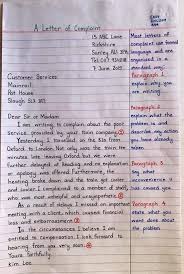 A Letter of Complaint
15 ABC Lane
Surrey
Tel:
7 June 2013
Customer Services
Mainrail
Pot House
Slough SL3
Dear Sir or Madam
I am writing to complain about the poor
service provided by your train company.
Yesterday, I travelled on the 8.15a from
Oxford to London. Not only was the train ten
minutes late leaving Oxford but we were
further delayed at Reading and no explanation
or apology was offered. Furthermore, the
heating broke down, the train got colder
and colder. I complained to a member of staff,
who was most unhelpful and unapologetic.
As a result of delays, I missed an important
meeting with a client, which caused financial
loss and embarrassment.
In the circumstances I believe I am
entitled to compensation. I look forward to
hearing from you very soon.
Yours faithfully
Kim Lee
Most letters of
complaint use formal
language and are
organised in a
standard way:
Paragraph 1
explain why you
are writing
Paragraph 2
explain what the
problem is and
describe any action
you have already
taken
Paragraph 3
Say what
inconvenience it
has caused you
Paragraph 4
State what you
want done about
the problem